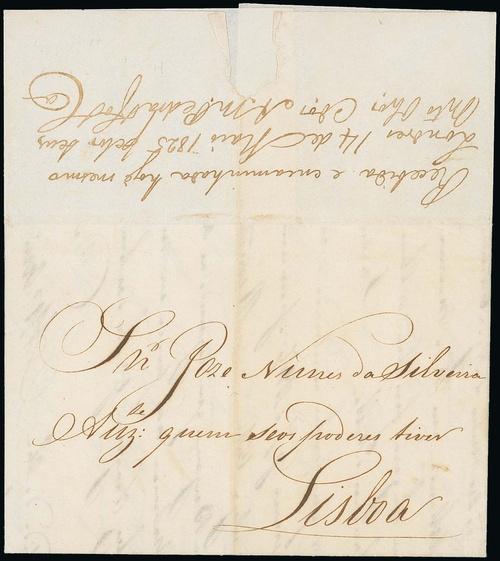 Recebida e encaminhada hoje mesmo
Londres 14 de Maio 1825 pelos seus
Snr. Joze Nunes da Silveira
Auz:de quem seos poderes tiver
Lisboa